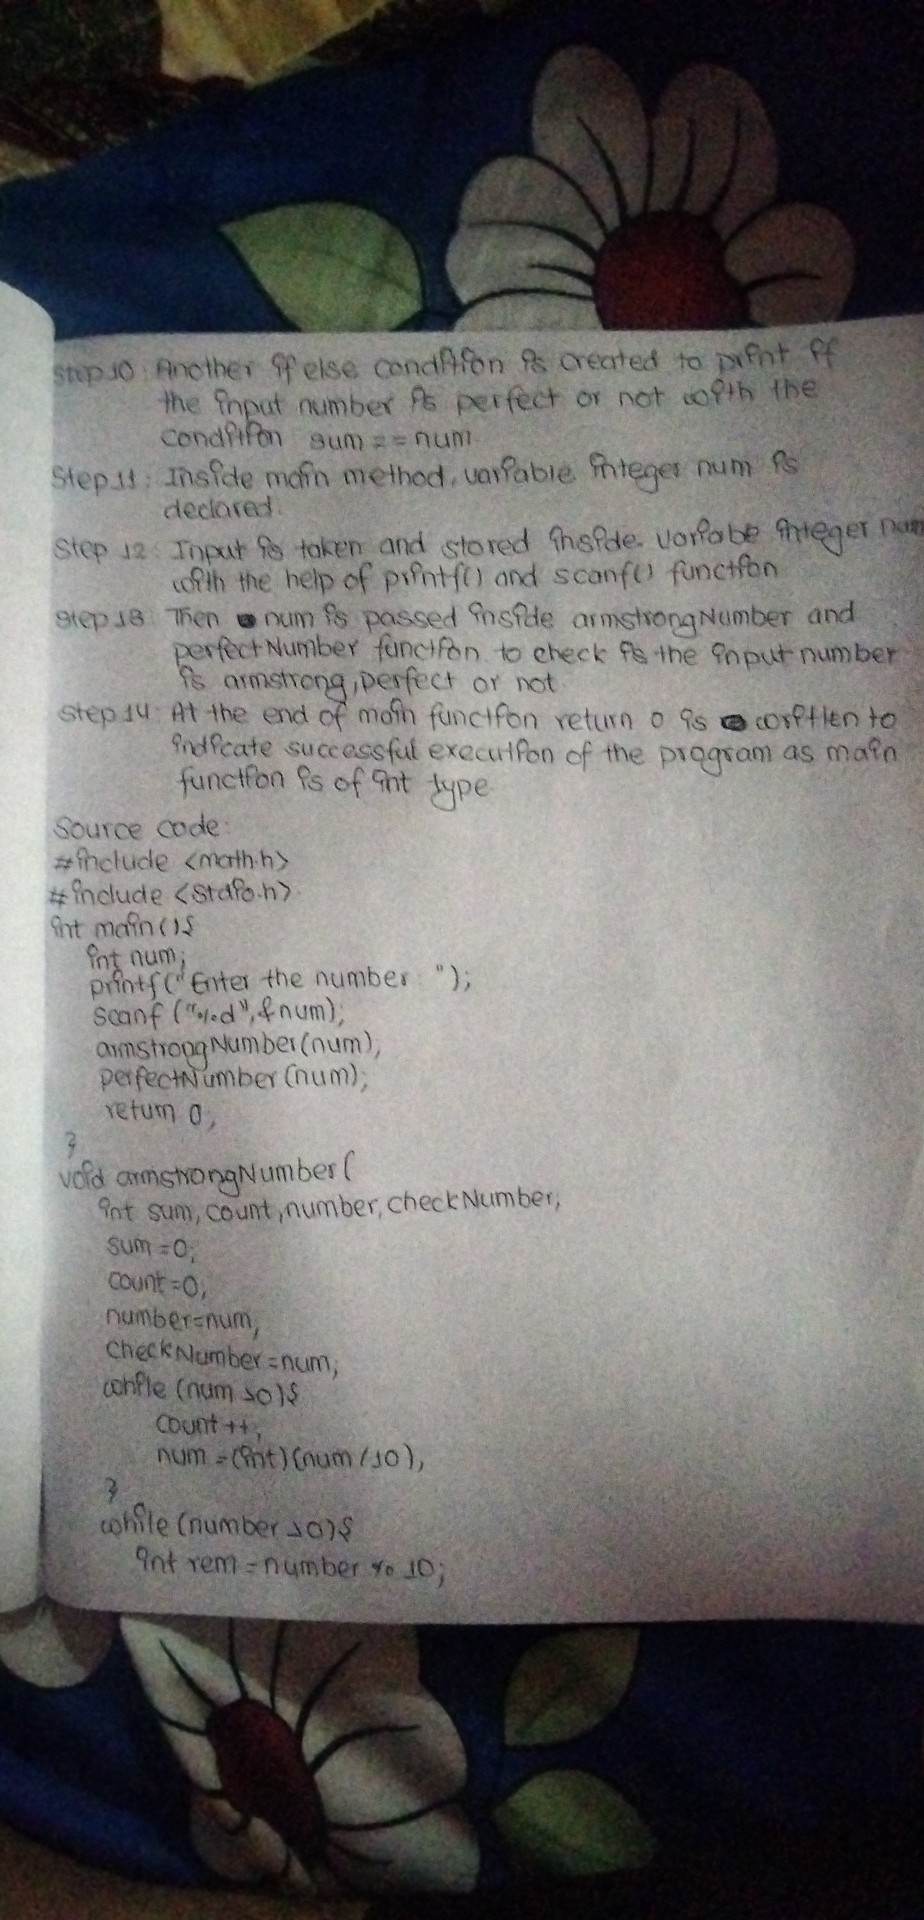 Step 10: Another if else condition is created to print if
the input number is perfect or not with the
condition sum == num.
Step 11: Inside main method, variable integer num is
declared.
Step 12: Input is taken and stored inside variabe integer num
with the help of printf() and scanf() function
Step 13: Then num is passed inside armstrongNumber and
perfectNumber function to check is the input number
is armstrong, perfect or not
Step 14: At the end of main function return 0 is written to
indicate successful execution of the program as main
function is of int type.
Source code:
#include <math.h>
#include <stdio.h>
int main(){
int num;
printf("Enter the number: ");
scanf("%d",&num);
armstrongNumber(num);
perfectNumber(num);
return 0;
}
void armstrongNumber(
int sum, count, number, checkNumber;
sum=0;
count=0;
number=num;
checkNumber=num;
while (num>0){
count++;
num=(int)(num/10);
}
while (number>0){
int rem=number%10;